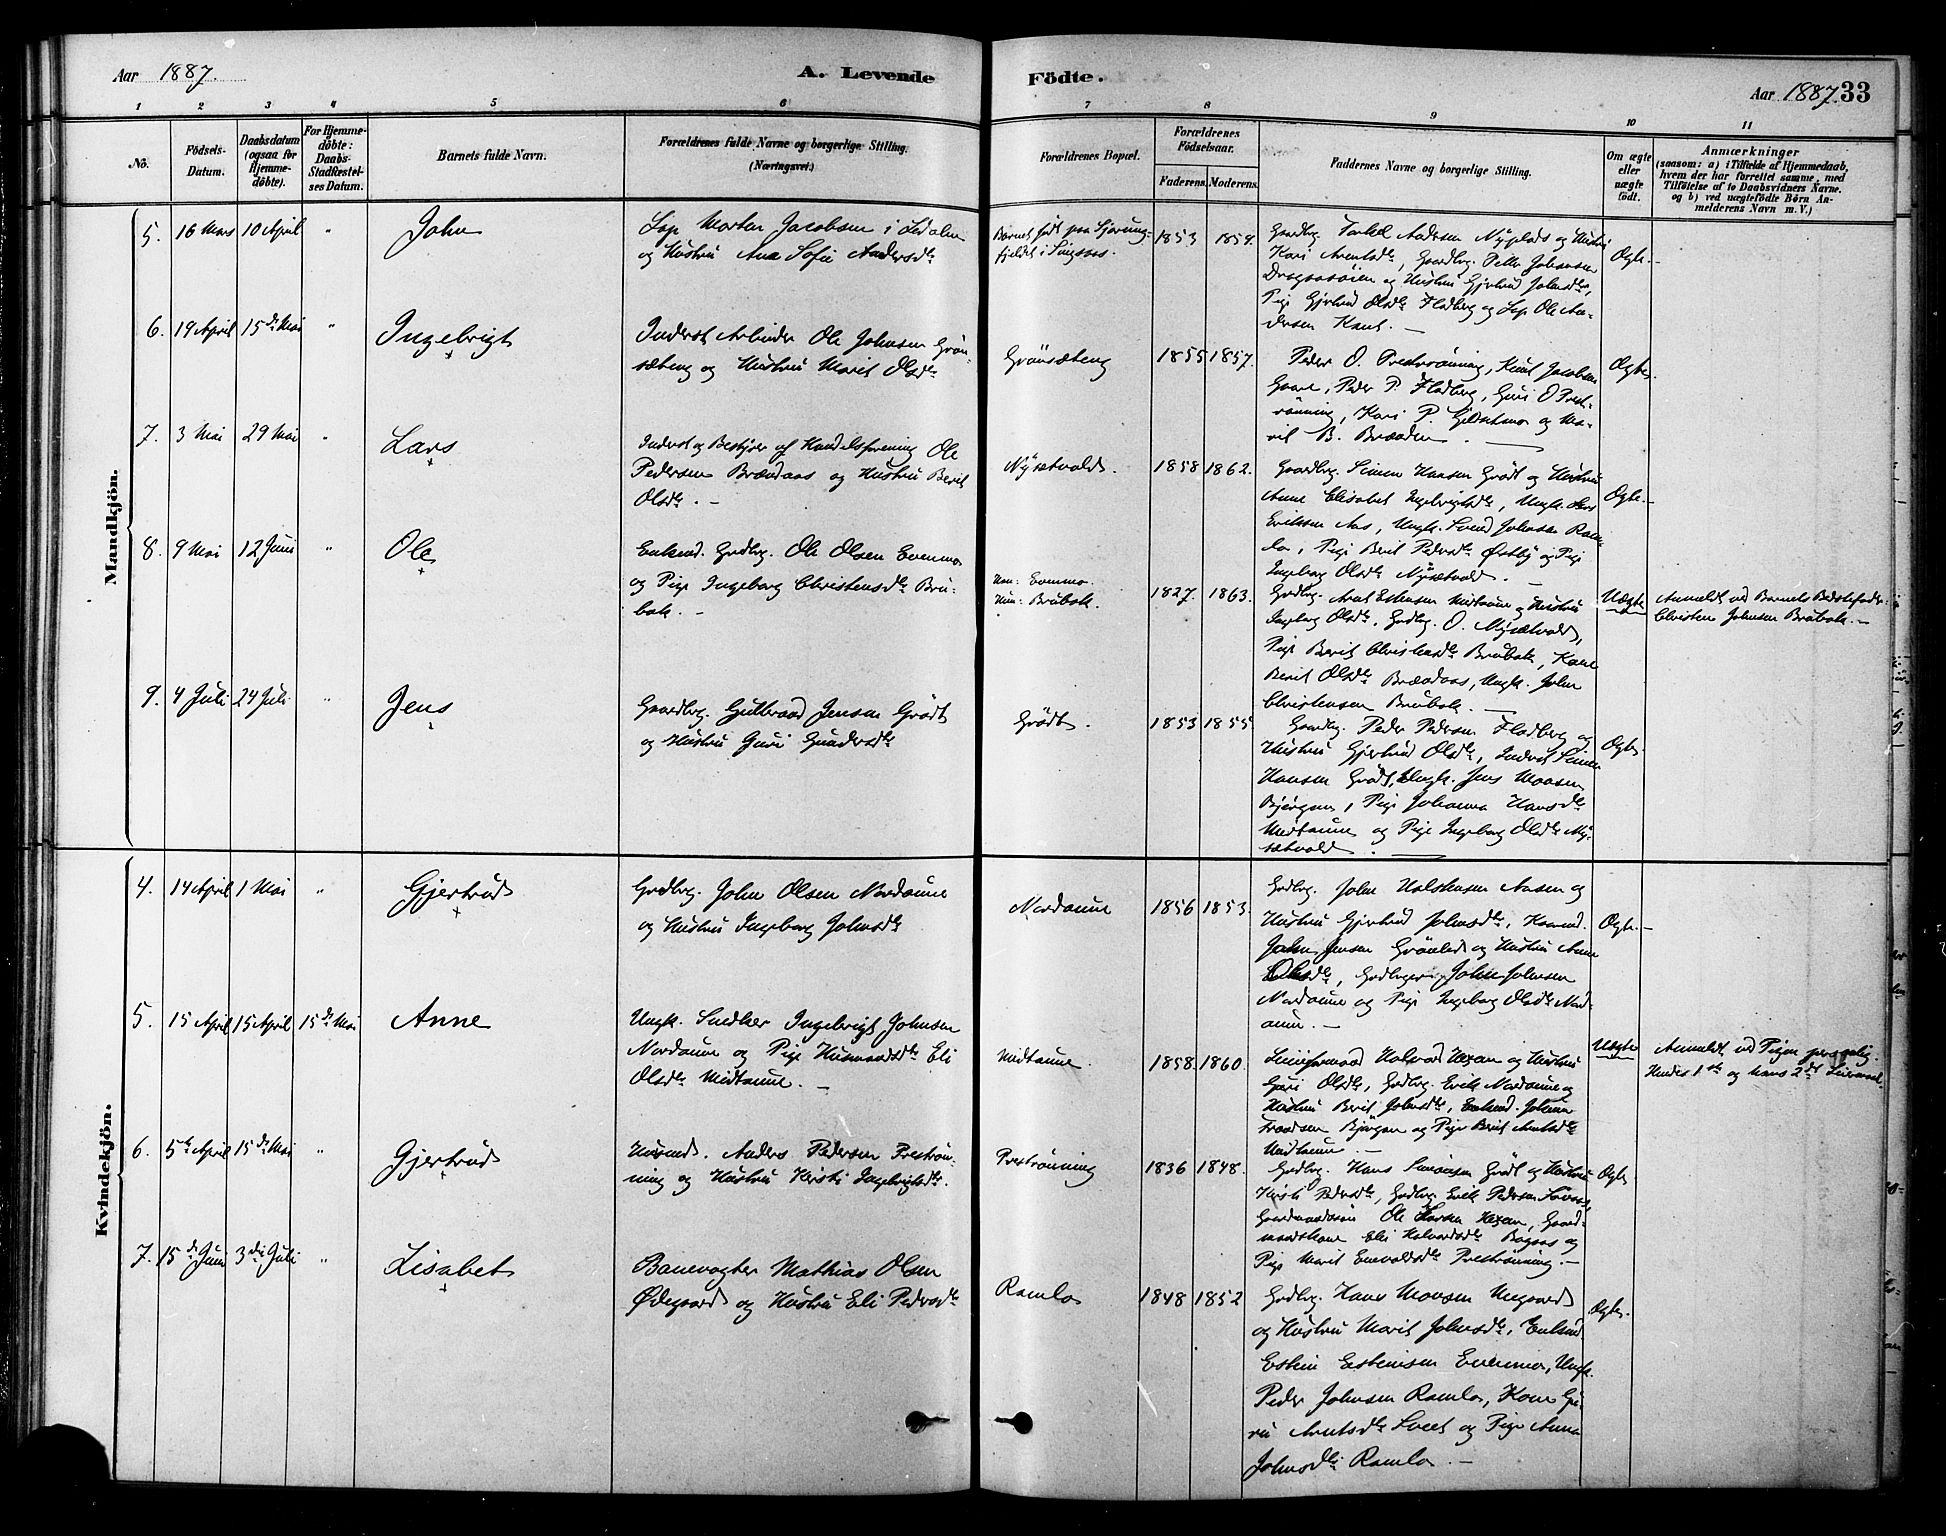 Aar 1887.
A. Levende
Födte.
Aar 1887. 33
1 2 3 4 5 6 7 8 9 10 11
No.
Födsels-
Datum.
Daabsdatum
(ogsaa for
Hjemme-
döbte).
For Hjemme-
döbte:
Daabs-
Stadfæstel-
ses Datum.
Barnets fulde Navn.
Forældrenes fulde Navne og borgerlige Stilling.
(Næringsvei.)
Forældrenes Bopæl.
Forældrenes
Födselsaar.
Faderens. Moderens.
Faddernes Navne og borgerlige Stilling.
Om ægte
eller
uægte
födt.
Anmærkninger
(saasom: a) i Tilfælde af Hjemmedaab,
hvem der har forrettet samme, med
Tilföielse af to Daabsvidners Navne.
og b) ved uægtefödte Börn An-
melderens Navn m. V.)
Mandkjön.
5. 16 Mars 10 April " John
Morten Jacobsen i
og Hustru Ana Sofie Andersdtr
Barnet født paa
fjeldet i Singsaas.
1853 1854.
Gaardbrg. Andersen Nyplads og Hustru
Kari Arentsdtr, Gaardbrg. Peter Johansen
og Hustru Gjertrud Johnsdtr,
Pige Gjertrud Olsdtr Flodberg og Lap Ole An-
dersen Kant. —
Ægte. —
6. 19 April 15de Mai " Ingebrigt
Inderst Arbeider Ole Johnsen Grön-
sæteng og Hustru Marit Olsdtr
Grönsæteng 1855 1857.
Peder O. Preströnning, Knut Jacobsen
Gaare, Peder P. Flodberg, Guri O Prest-
rönning, Kari P. og Ma-
rit B. Bræaden. —
Ægte.
7. 3 Mai 29 Mai " Lars
Inderst og Bestyrer af Handelsforening Ole
Pedersen Brændaas og Hustru Berit
Olsdtr. —
Nysætvold. 1858 1862.
Gaardbrg. Simen Hansen Grödt og Hustru
Anne Elisabet Ingebrigtsdtr, Ungk. Lars
Eriksen Aas, Ungk. Svend Johnsen Ram-
lo, Pige Berit Pedersdtr Østby og Pige
Ingeborg Olsdtr Nysætvold. —
Ægte. —
8. 9 Mai 12 Juni " Ole
Enkemd. Grdbrg. Ole Olsen Evenmo
og Pige Ingeborg Christensdtr Bru-
bak. —
Han: Evenmo.
Hun: Brubak.
1827. 1863.
Grdbrg. Arnt Estensen Midtaune og Hustru
Ingeborg Olsdtr, Grdbrg. O. Nysætvold,
Pige Berit Christensdtr Brubak, Kone
Berit Olsdtr Brændaas, Ungk. John
Christensen Brubak. —
Uægte
Anmeldt ved Barnets Bedstefader
Christen Johnsen Brubak. —
9. 4 Juli 24 Juli " Jens
Gaardbrg. Gulbrand Jensen Grödt
og Hustru Guri Gundersdtr
Grödt. 1853 1855
Gaardbrg. Peder Pedersen Flodberg og
Hustru Gjertrud Olsdtr, Inderst Simen
Hansen Grödt, Ungk. Jens Monsen
Bjørgen, Pige Johanna Hansdtr
Midtaune og Pige Ingeborg Olsdtr Ny-
sætvold. —
Ægte.
Kvindekjön.
4. 14 April 1 Mai " Gjertrud
Grdbrg. John Olsen Nordaune
og Hustru Ingeborg Johnsdtr
Nordaune 1856 1853.
Grdbrg. John Halstensen Aasen og
Hustru Gjertrud Johnsdtr,
John Jensen Grönlid og Hustru Anne
Olsdtr, Grdbrger John Johnsen
Nordaune og Pige Ingeborg Olsdtr Nord-
aune. —
Ægte. —
5. 15 April 15 April 15de Mai Anne
Ungk. Snedker Ingebrigt Johnsen
Nordaune og Pige Husmandsdtr Eli
Olsdtr Midtaune. —
Midtaune. 1858. 1860.
Halvard Hexan og Hustru
Guri Olsdtr, Grdbrg. Erik Nordaune og
Hustru Berit Johnsdtr, Enkemd. Johan
Bjørgen og Pige Berit Arntsdtr
Midtaune. —
Uægte
Anmeldt ved Pigen personlig.
Hendes 1ste og hans 2det Leiermaal.
6. 5te April 15de Mai " Gjertrud
Husmd. Anders Pedersen Preströn-
ning og Hustru Kirsti Ingebrigtsdtr.
Preströnning 1836 1848.
Grdbrg. Hans Simonsen Grödt og Hustru
Kirsti Pedersdtr, Grdbrg. Erik Pedersen
Ole Larsen Hexan, Gaard-
mandskone Eli Halvardsdtr og
Pige Marit Enevoldsdtr Preströnning. —
Ægte
7. 15de Juni 3die Juli " Lisabet
Banevogter Mathias Olsen
Ødegaard og Hustru Eli Pedersdtr
Ramlo 1848 1852
Grdbrg. Hans Monsen Nygaard
og Hustru Marit Johnsdtr, Enkemd
Esten Estensen Evenmo, Ungk.
Peder Johnsen Ramlo, Kone Gu-
ru Arntsdtr og Pige Anna
Johnsdtr Ramlo. —
Ægte.